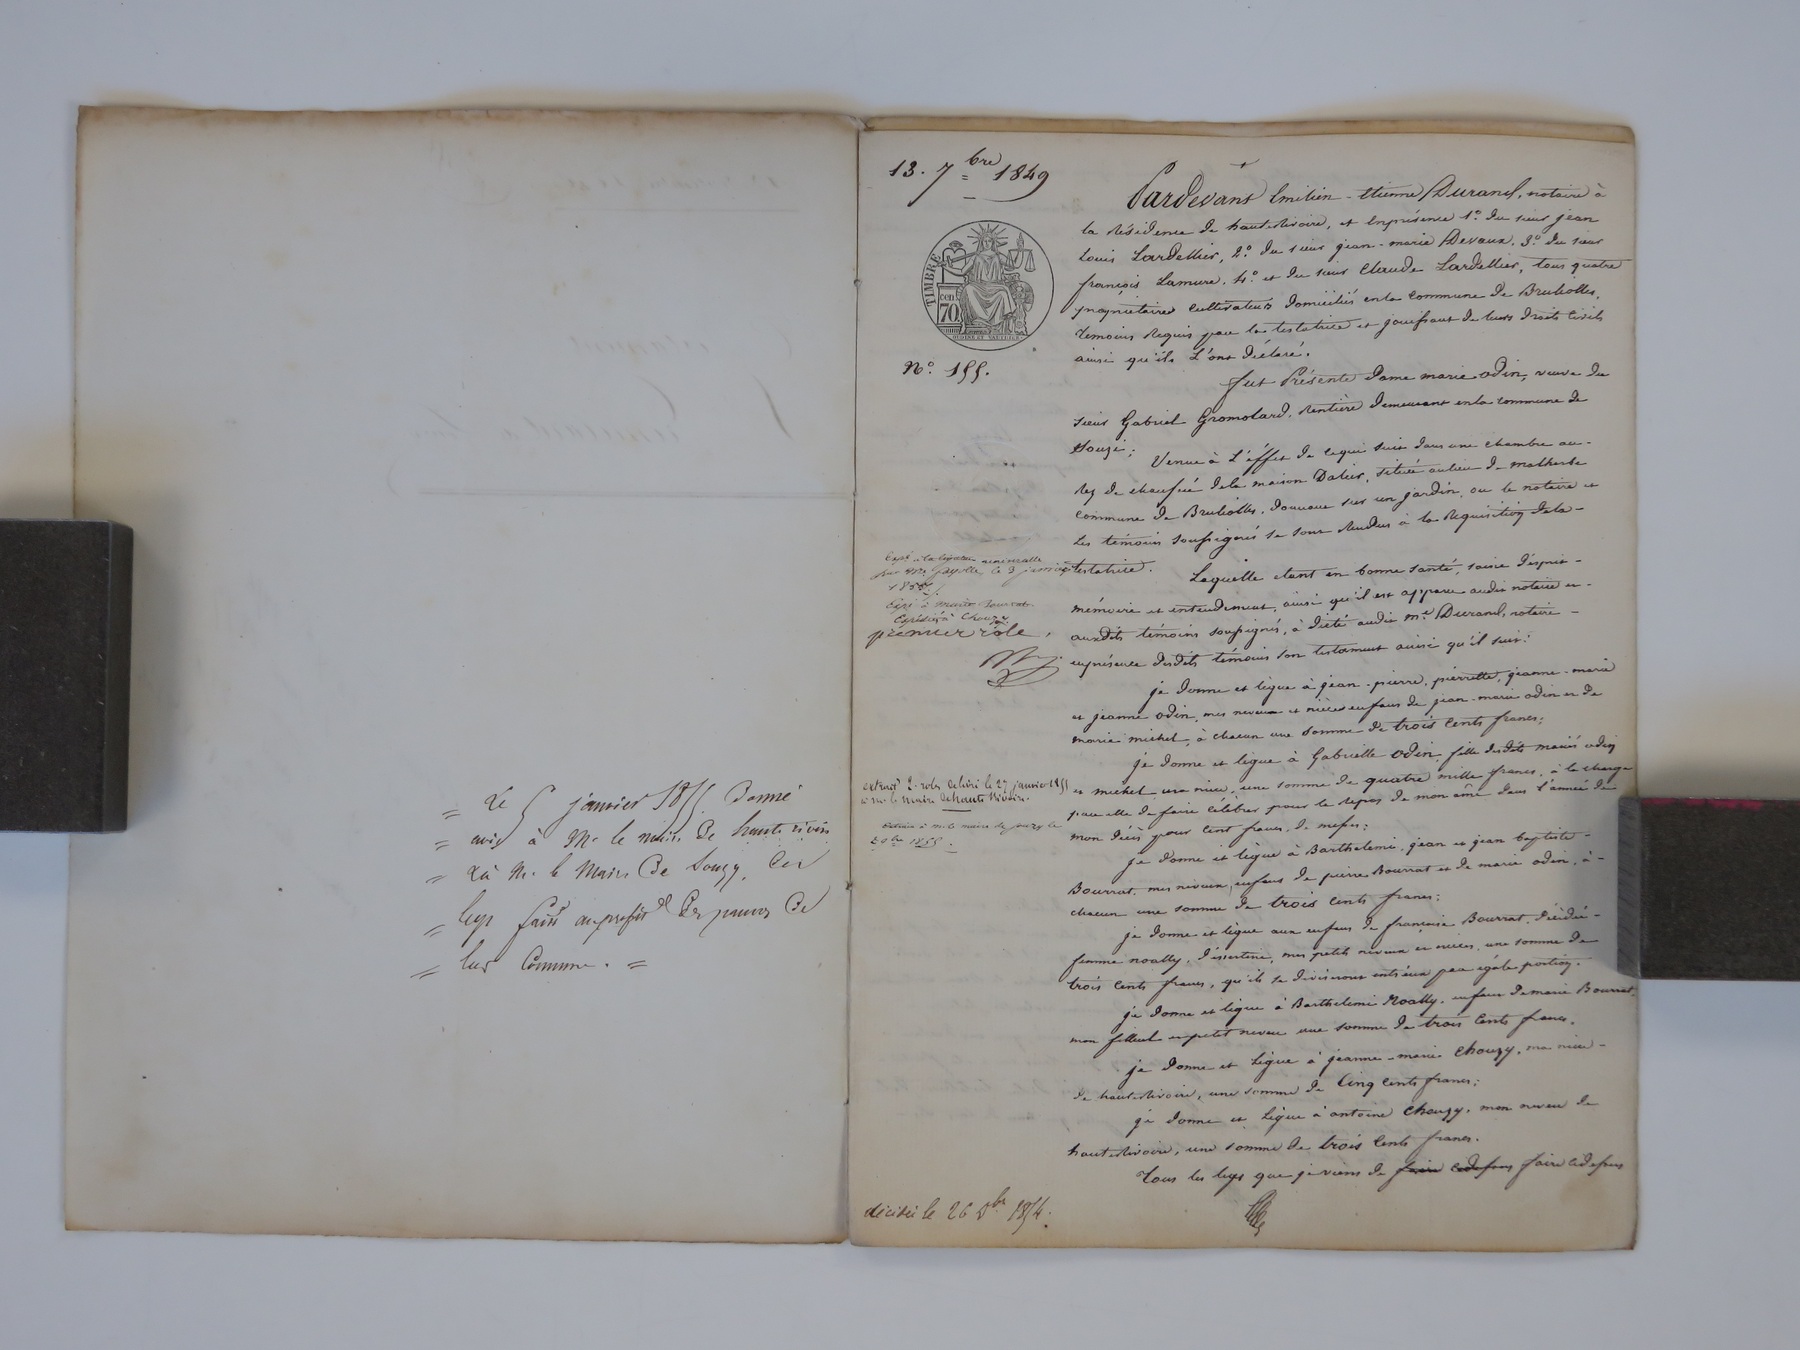 = Le 5 janvier 1855. Donné
= avis à Mr le maire de haute rivoire
= & à Mr le Maire de Souzy, des
= legs faits au profit des pauvres de
= leur Commune. =
13. 7bre 1849
TIMBRE
cen
70
No. 155.
Expé à la légataire universelle
pour Me fayolle le 3 janvier
1855.
Expé à
Expédié à Chouzy
premier rôle,
extrait 2 roles délivré le 27 janvier 1855
à mr le maire de haute Rivoire.
Extrait à mr le maire de souzy le
1855.
décédée le 26 Xbre 1854.
Pardevant Emilien-Etienne Durand, notaire à
la Résidence de hauterivoire, et En présence 1o. du sieur jean
Louis Lardellier, 2o. du sieur jean-marie Devaux. 3o. du sieur
françois Lamure. 4o. et du sieur Claude Lardellier, tous quatre
propriétaires cultivateurs domiciliés en la commune de Brullioles,
témoins Requis par la testatrice et jouissant de leurs droits civils
ainsi qu'ils L'ont déclaré.
fut Présente dame marie odin, veuve du
sieur Gabriel Gromolard, Rentière demeurant en la commune de
Souzi;
Venue à L'éffet de ce qui suit dans une chambre au-
Rez de chaussée de la maison Dalier, située au lieu de malherbe
commune de Brullioles, donnant sur un jardin, ou le notaire et
Les témoins soussignés se sont Rendus à la Requisition de la-
testatrice.
Laquelle étant en bonne santé, saine d'esprit-
mémoire et entendement, ainsi qu'il est apparu audit notaire et-
auxdits témoins soussignés, à dicté audit me Durand, notaire-
en présence desdits témoins son testament ainsi qu'il suit:
je donne et lègue à jean-pierre, pierrette, jeanne-marie
et jeanne odin, mes neveux et nièces enfans de jean-marie odin et de
marie michel, à chacun une somme de trois cents francs;
je donne et lègue à Gabrielle odin, fille desdits mariés odin
et michel ma nièce, une somme de quatre mille francs, à la charge
par elle de faire célébrer pour le repos de mon âme dans l'année de
mon décès pour cent francs de messes;
je donne et lègue à Barthelemi, jean et jean baptiste-
Bourrat, mes neveux, enfans de pierre Bourrat et de marie odin, à-
chacun une somme de trois cents francs;
je donne et lègue aux enfans de françoise Bourrat, décédée-
femme noally, d'essertine, mes petits neveux et nièces, une somme de
trois cents francs, qu'ils se diviseront entr'eux par égale portion.
je donne et lègue à Barthelemi Noally, enfant de marie Bourrat,
mon filleul et petit neveu une somme de trois cents francs.
je donne et Lègue à jeanne-marie Chouzy, ma nièce-
de hauterivoire, une somme de Cinq cents francs;
je donne et Lègue à antoine Chouzy, mon neveu de
hauterivoire, une somme de trois cents francs.
Tous les legs que je viens de faire cidessus faire cidessus